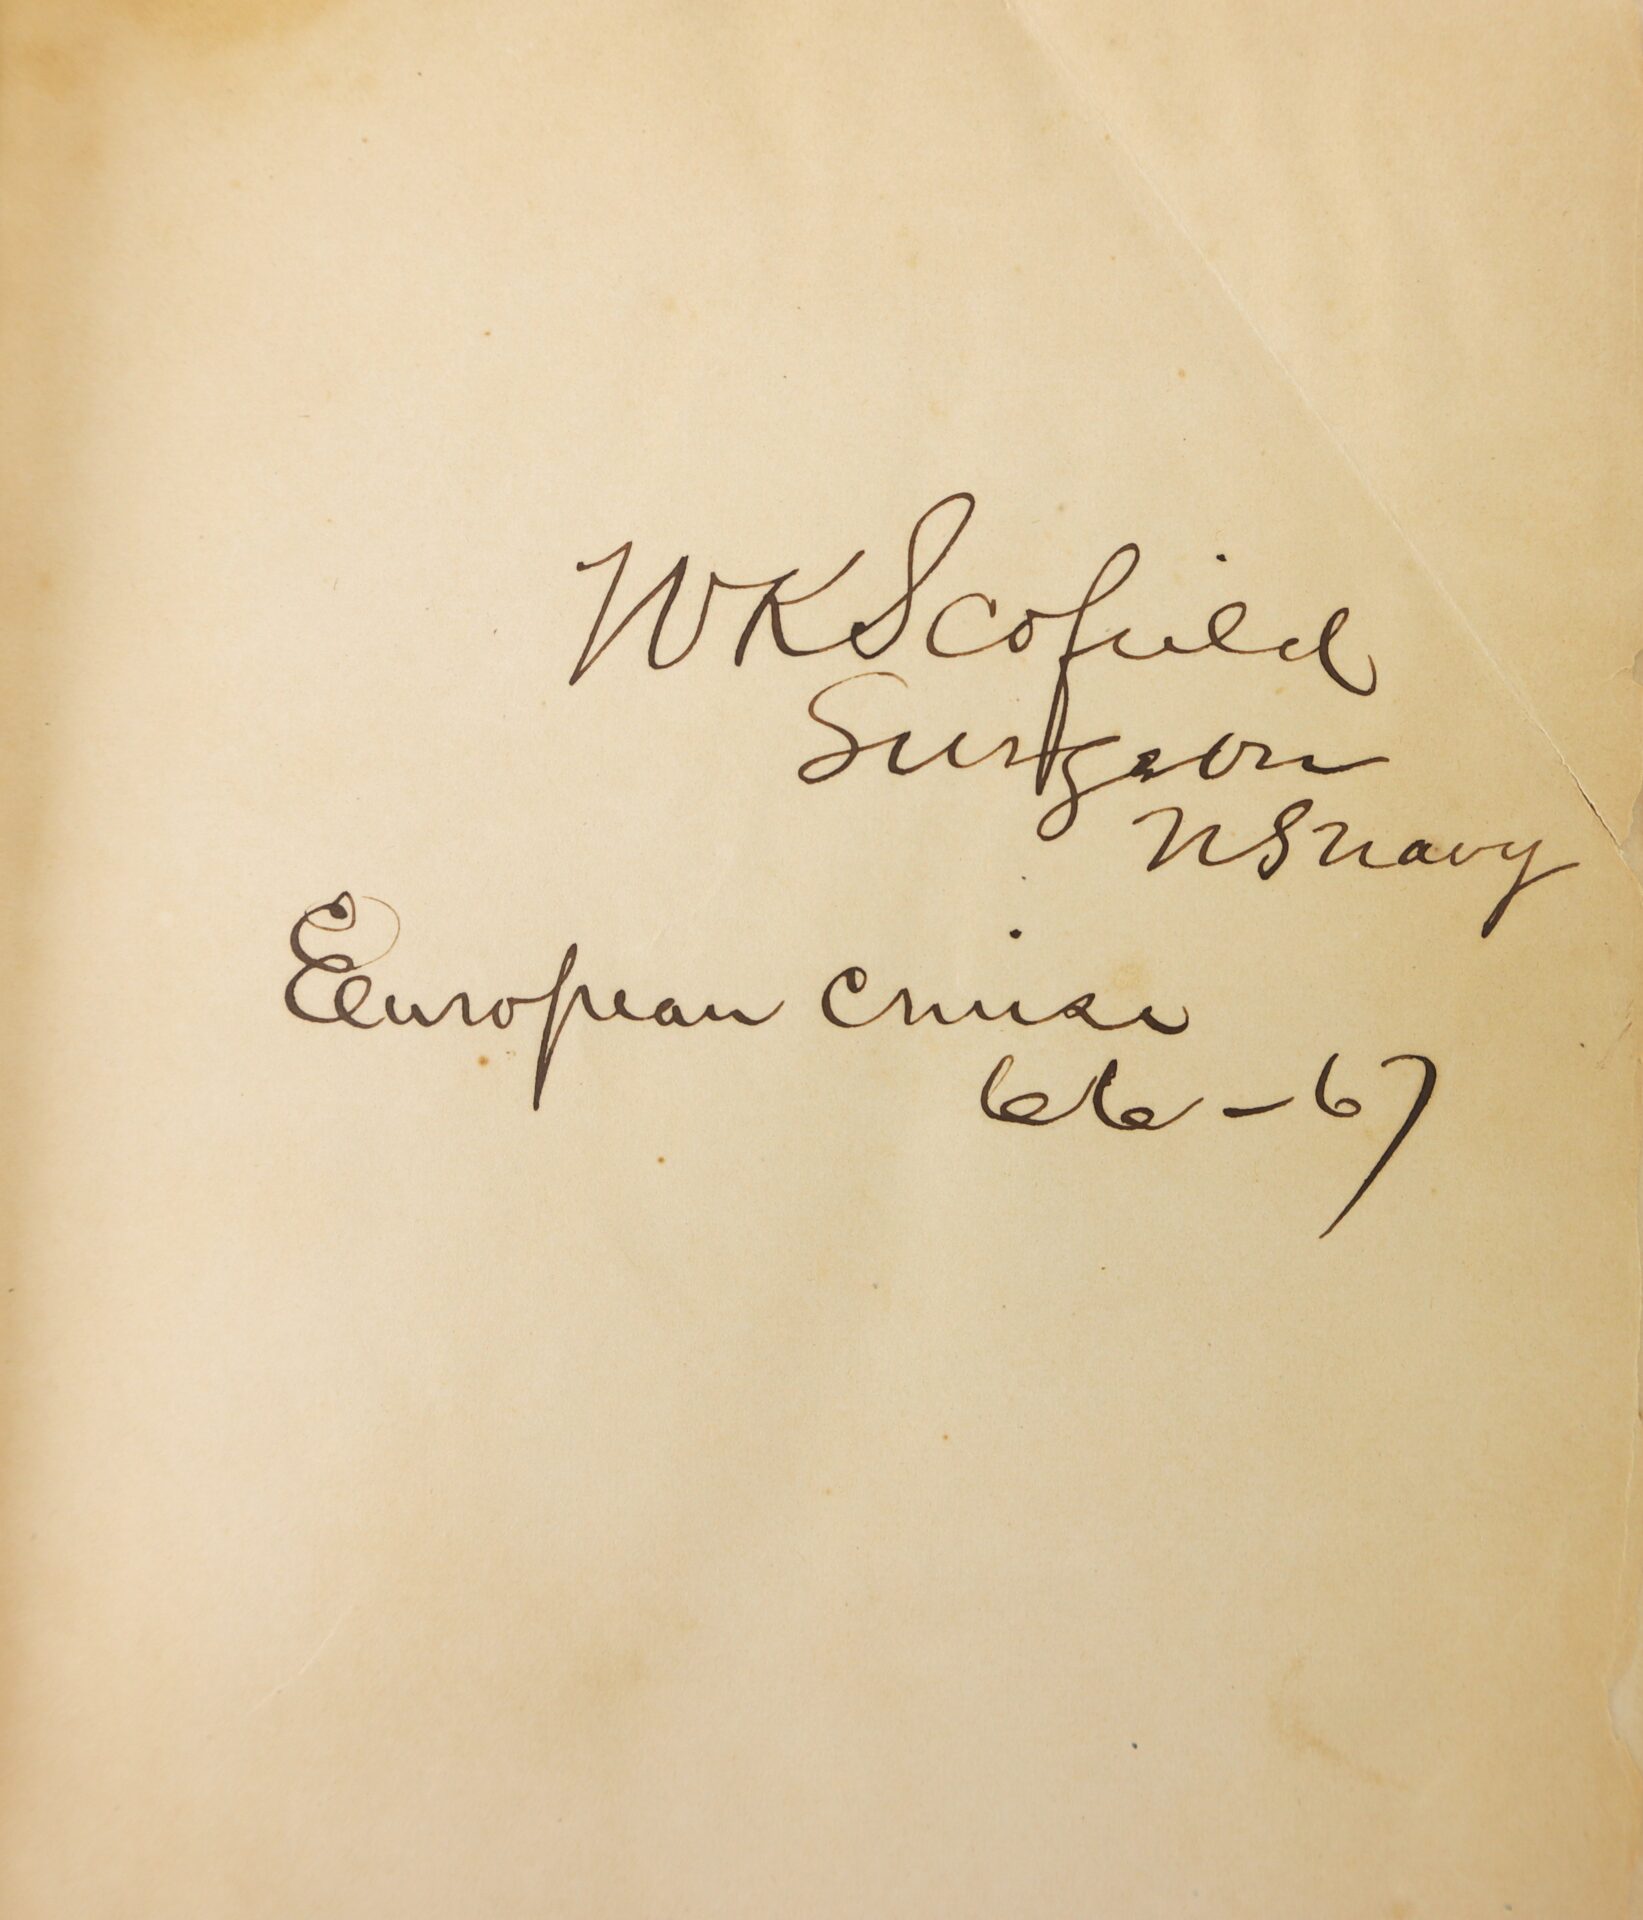 W K Scofield
Surgeon
U S Navy
European Cruise
66 - 67